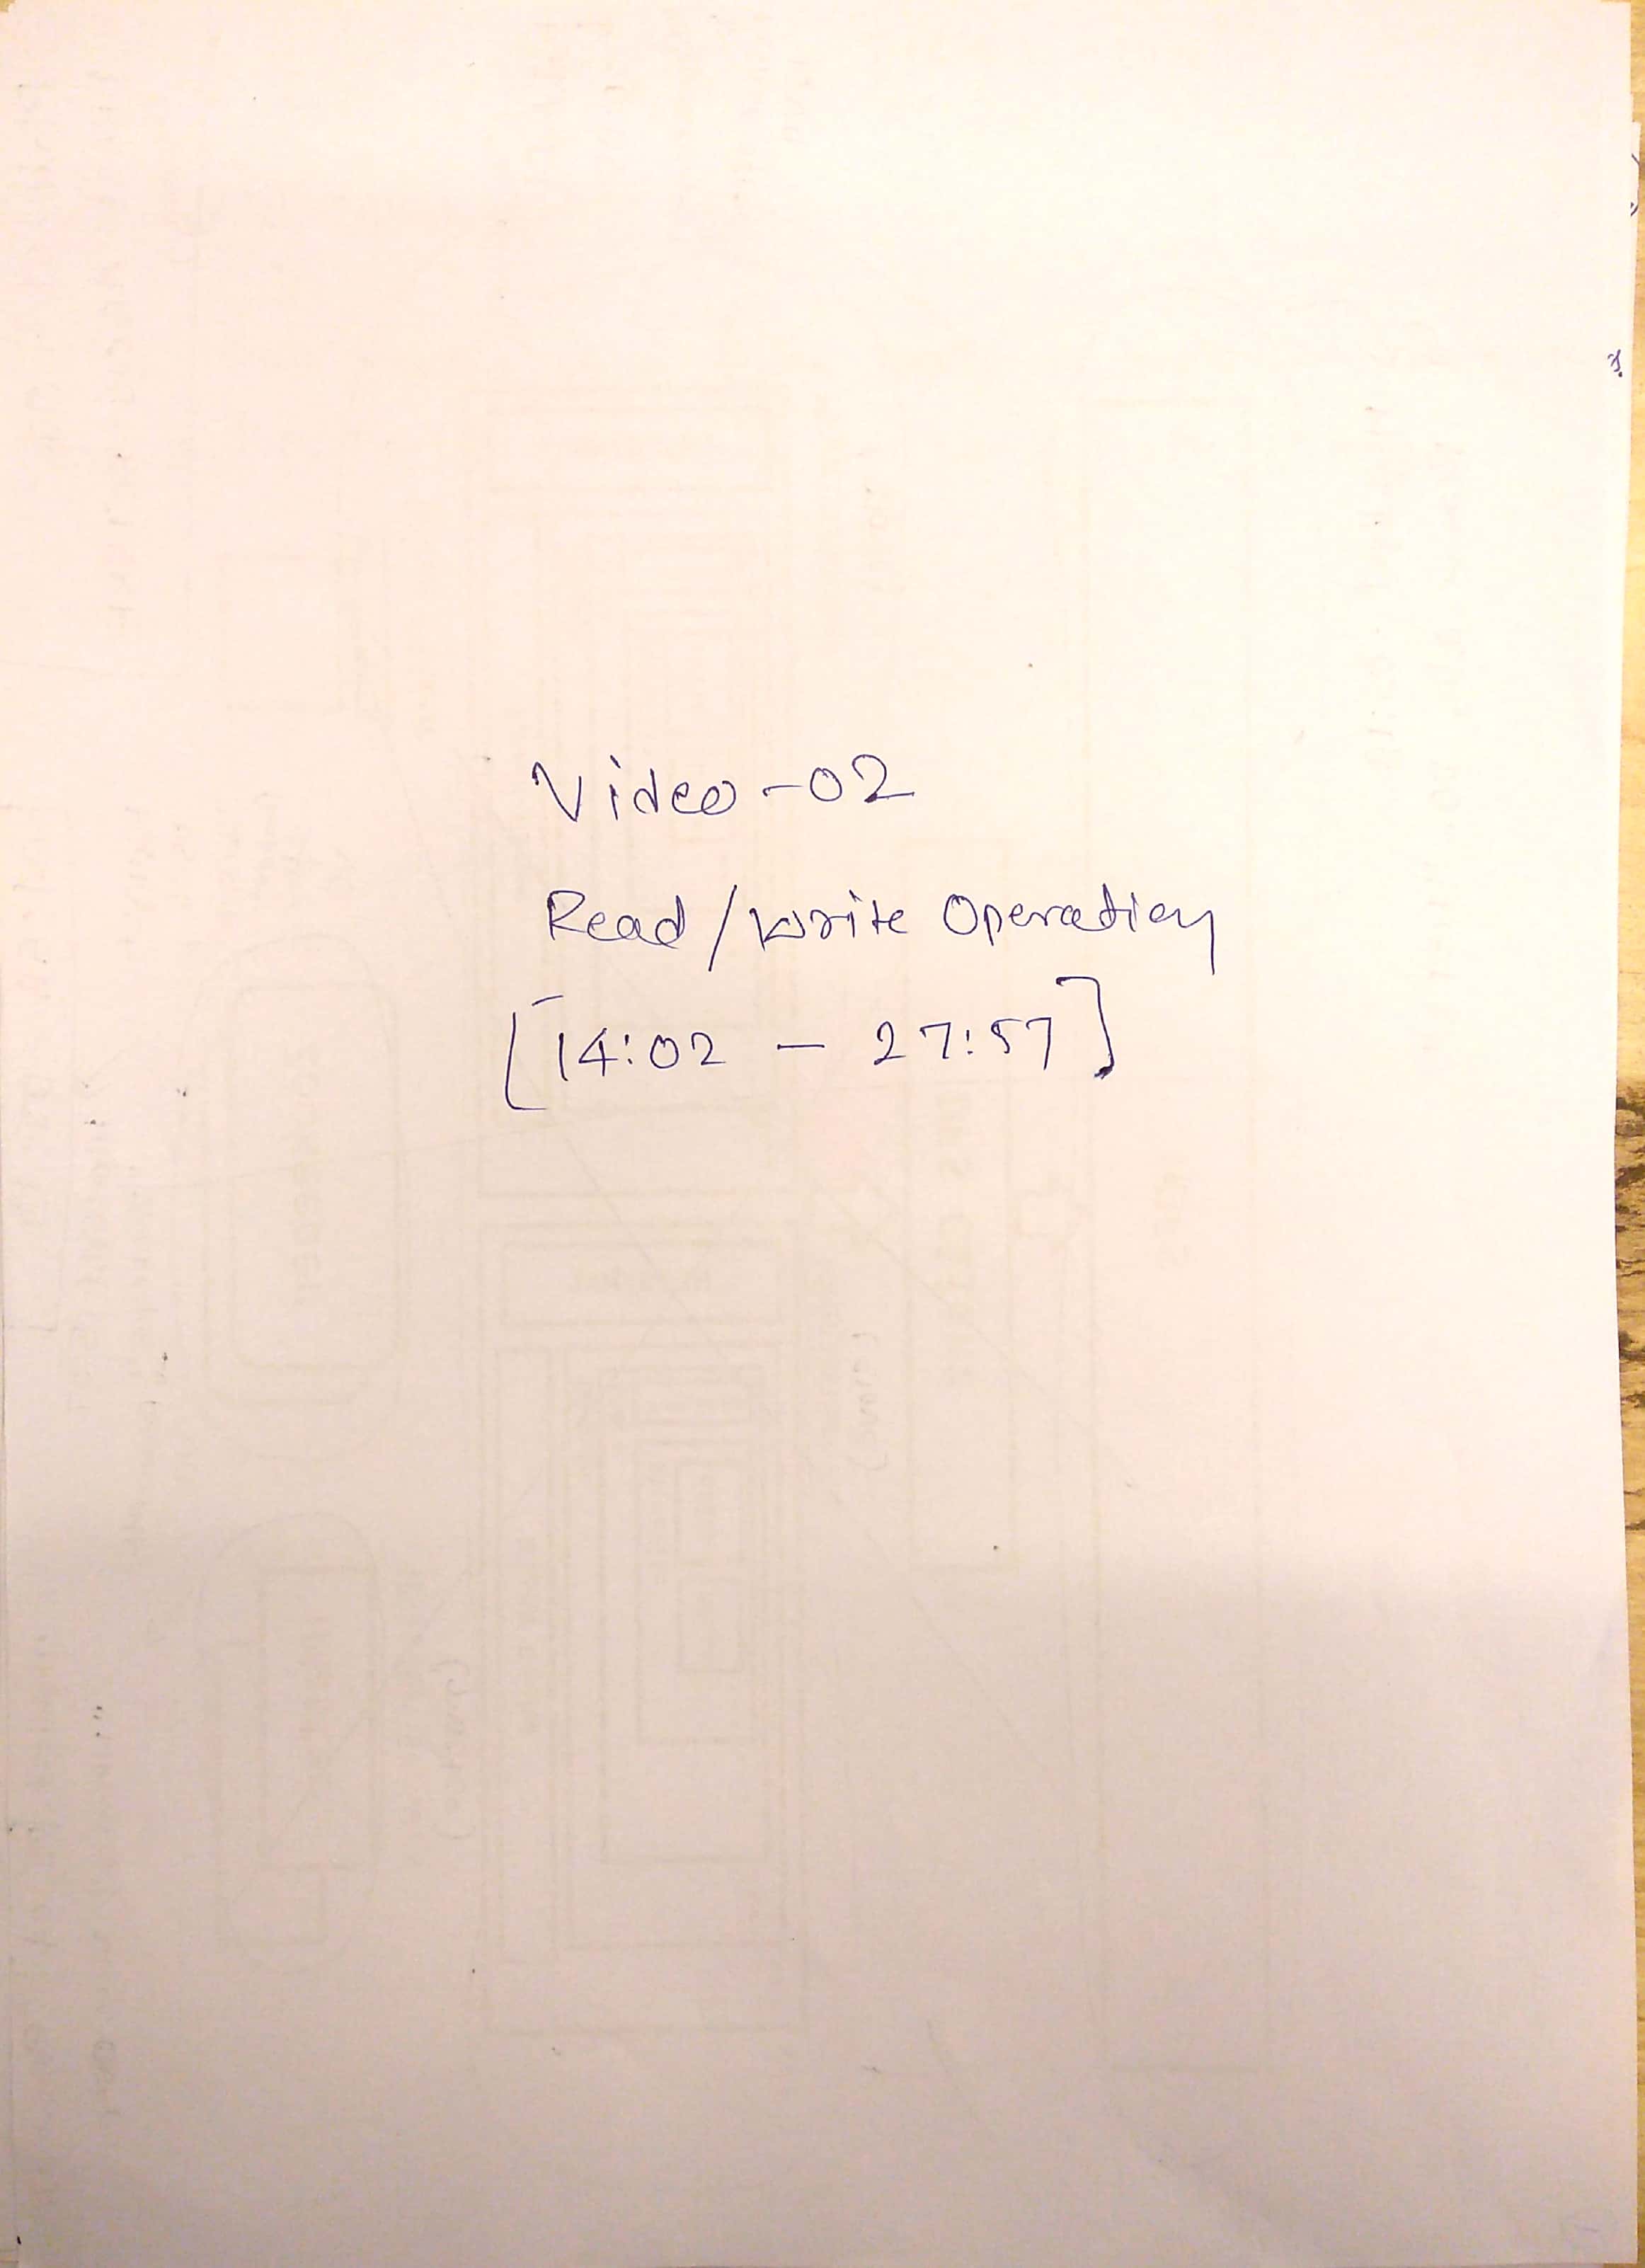 Video-02
Read / Write Operation
[14:02 - 27:57]